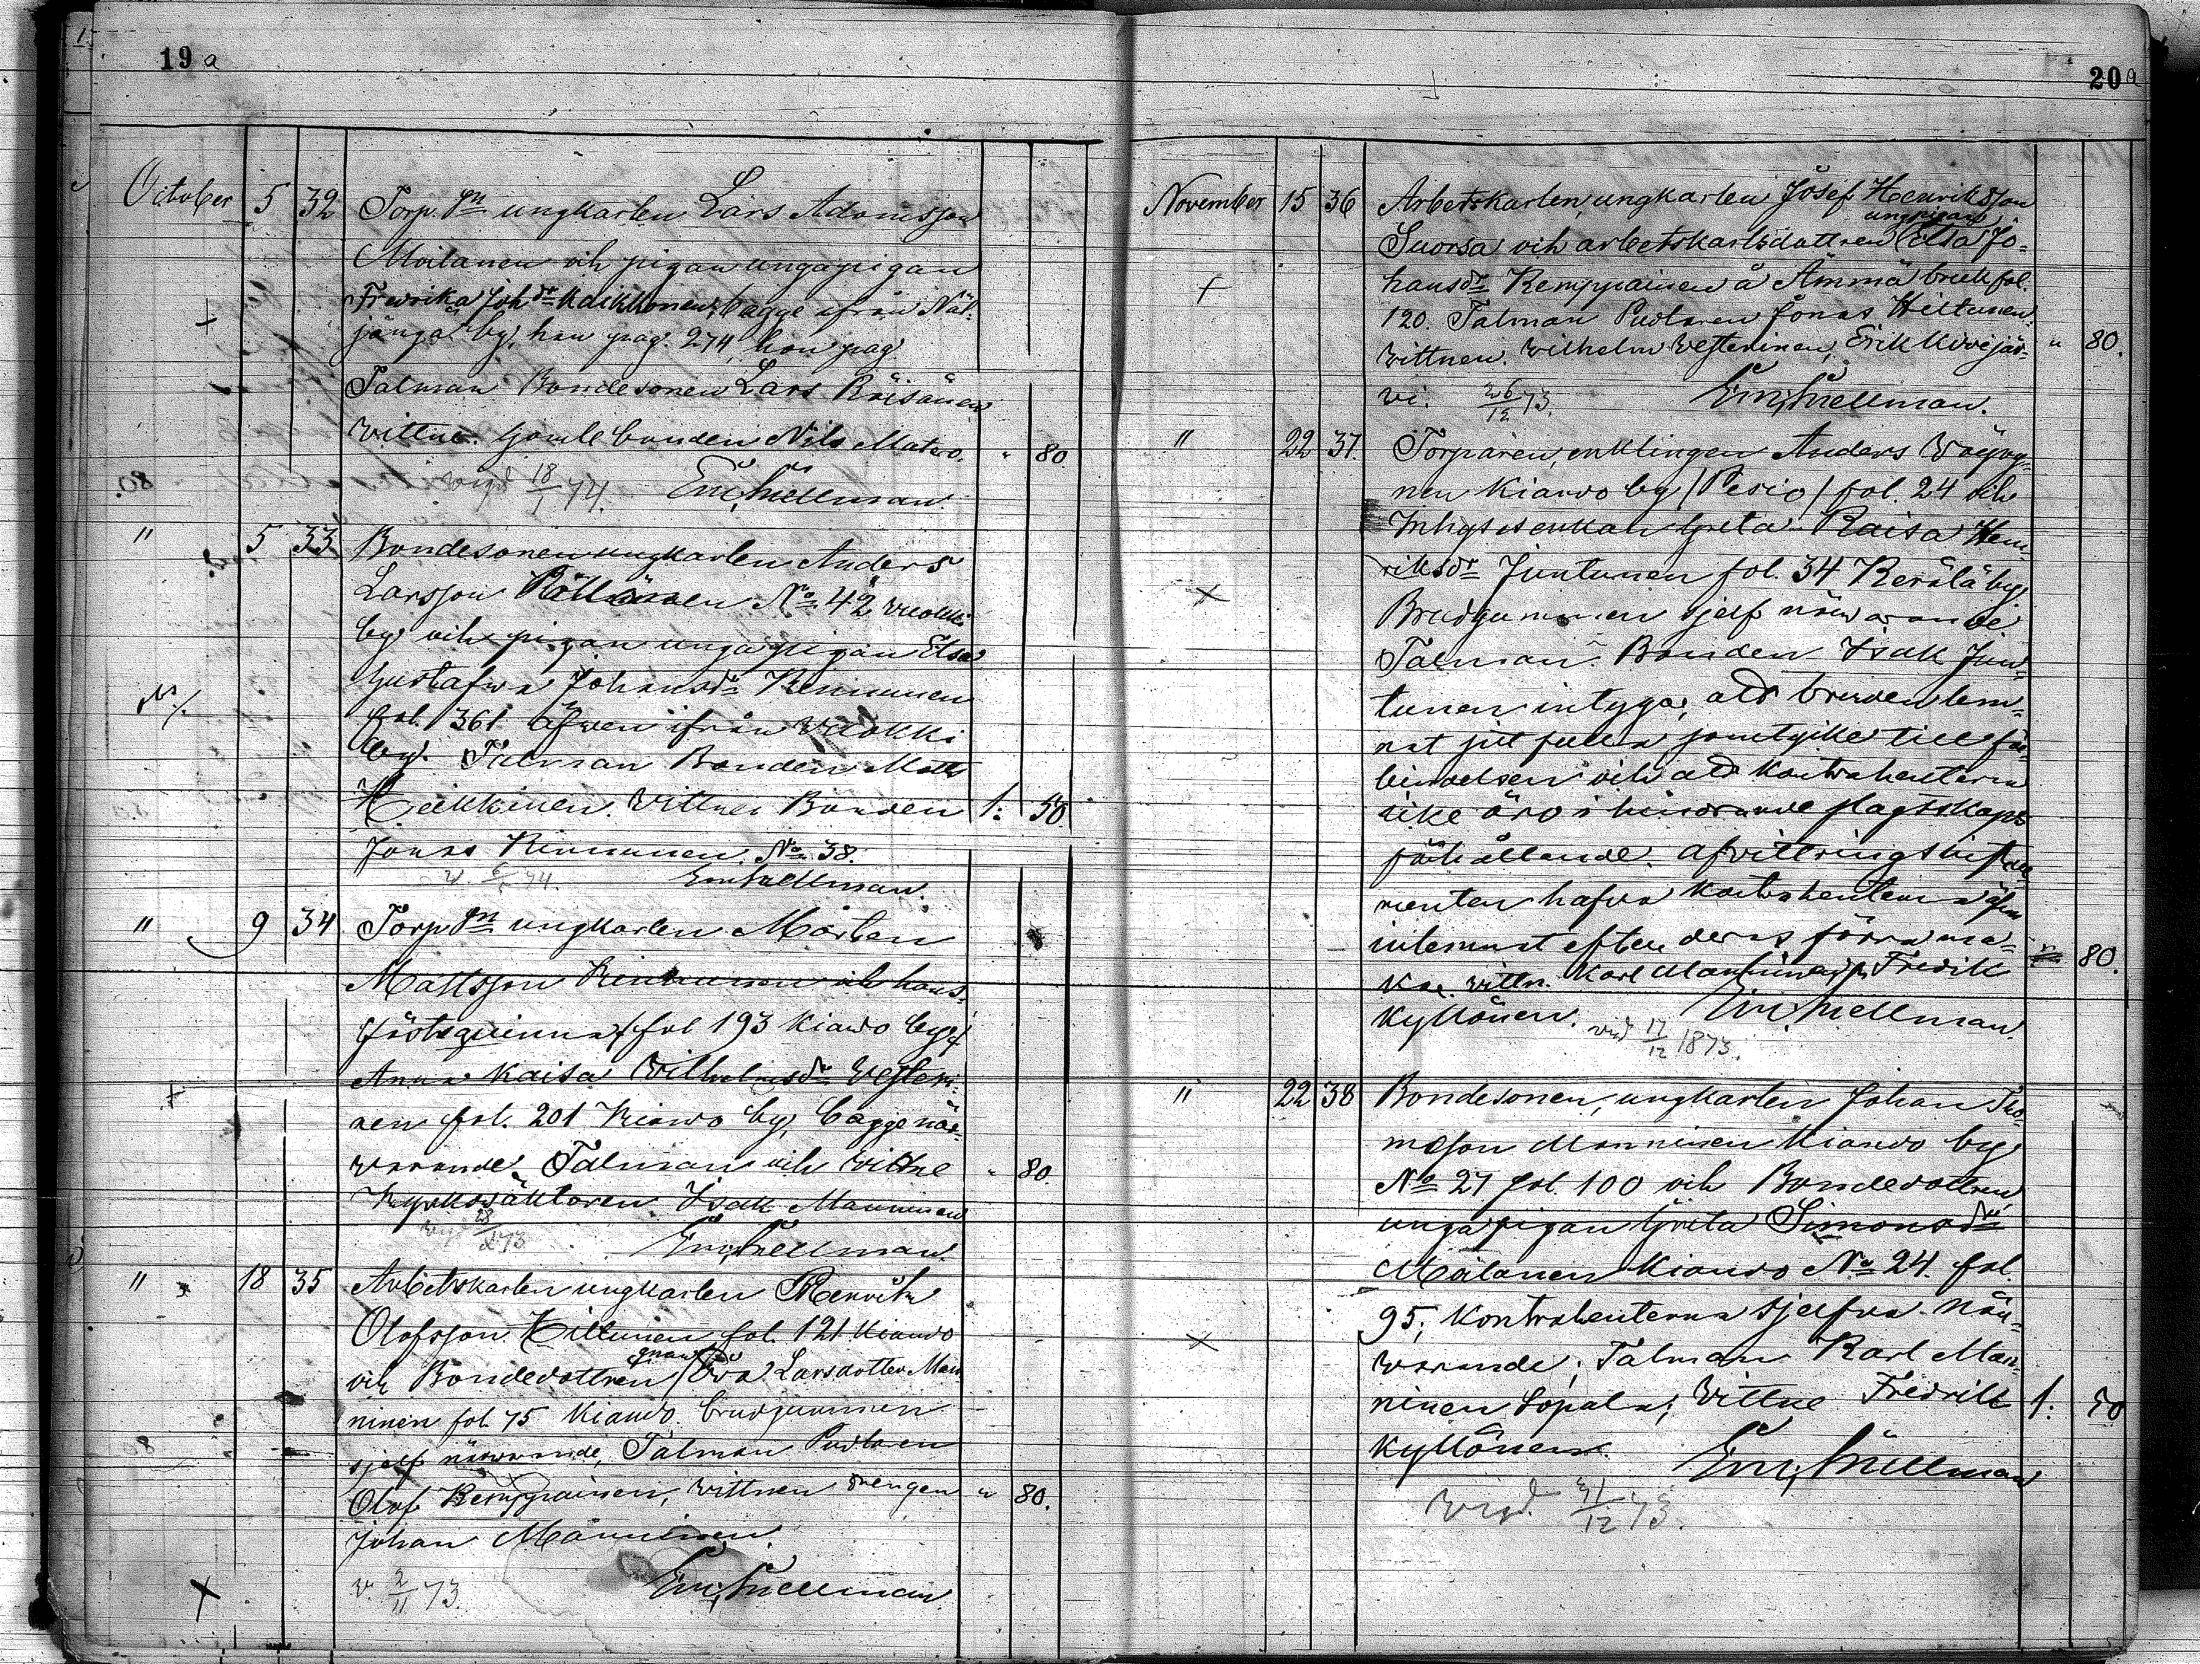 19 a
October 5 32 Torp. sn ungkarlen Lars Adamsson
Moilanen och pigan unga pigan
Fredrika Joh dr Kaikkonen, bagge ifrån Näl-
jängä by, han pag. 274, hon pag.
Talman Bondesonen Lars Räisänen
Vittne. Gamle bonden Nils Matero. " 80
vigd 18/1 74. Em. Snellman.
" 5 33 Bondesonen ungkarlen Anders
Larsson Pöllänen No 42 Vuokki
by och pigan unga pigan Elsa
Gustafva Johansdr Kinnunen
fol. 361 äfven ifrån Vuokki
by. Talman Bonden Matts
Heikkinen. Vittne Bonden 1: 50.
Jonas Kinnunen. No 38.
v. 74. Em. Snellman.
" 9 34 Torp. sn ungkarlen Mårten
Mattsson Kinnunen och hans
fästeqvinna / fol 193 Kiando by /
Anna Kaisa Vilhelmsdr Vesteri-
nen fol. 201 Kiando by, bagge när-
varande. Talman och Vittne " 80
Kyrkoväktaren Isak Manninen
vigd 28/ 73 Em. Snellman.
" 18 35 Arbetskarlen ungkarlen Henrik
Olofsson Kiltunen fol. 121 Kiando
och Bondedottren Eva Larsdotter Man-
ninen fol. 75 Kiando. brudgummen
sjelf närvarande, Talman Pudlaren
Olof Kemppainen, Vittnen drengen " 80.
Johan Manninen.
v. 2/11 73. Em. Snellman.
20 a
November 15 36 Arbetskarlen, ungkarlen Josef Henriksson
ungpigan
Suorsa och arbetskarlsdottren Elsa Jo-
hansdr Kemppainen å Ämmä bruk fol.
120. Talman Pudlaren Jonas Hiltunen.
Vittnen. Wilhelm Vesterinen, Erik Kivijär- " 80.
vi. 26/12 73. Em. Snellman.
" 22 37. Torparen, enklingen Anders Väyry-
nen Kiando by / Pesiö / fol. 24 och
Inhyses enkan Greta Kaisa Hen-
riksdr Juntunen fol. 34 Kerälä by.
Brudgummen sjelf närvarande
Talman. Bonden Isak Jun-
tunen intygar, att bruden lem-
nat sitt fulla samtycke till för-
bindelsen och att kontrahenterna
icke äro i hindrande slagtskaps
förhållande. Afvittringsinstru-
menten hafva kontrahenterna äfven
inlemnat efter deras förra ma-
kar. Vittn. Karl Manninen, Fredrik 80.
Kyllönen. Em. Snellman.
vigd 17/12 1873.
" 22 38 Bondesonen, ungkarlen Johan Tho-
masson Manninen Kiando by
No 27 fol. 100 och Bondedottren
unga pigan Greta Simonsdr
Moilanen Kiando No 24. fol.
95; Kontrahenterna sjelfva när-
varande; Talman Karl Man-
ninen Sopala; Vittne Fredrik 1: 50
Kyllönen. Em. Snellman
vigd. 31/12 73.